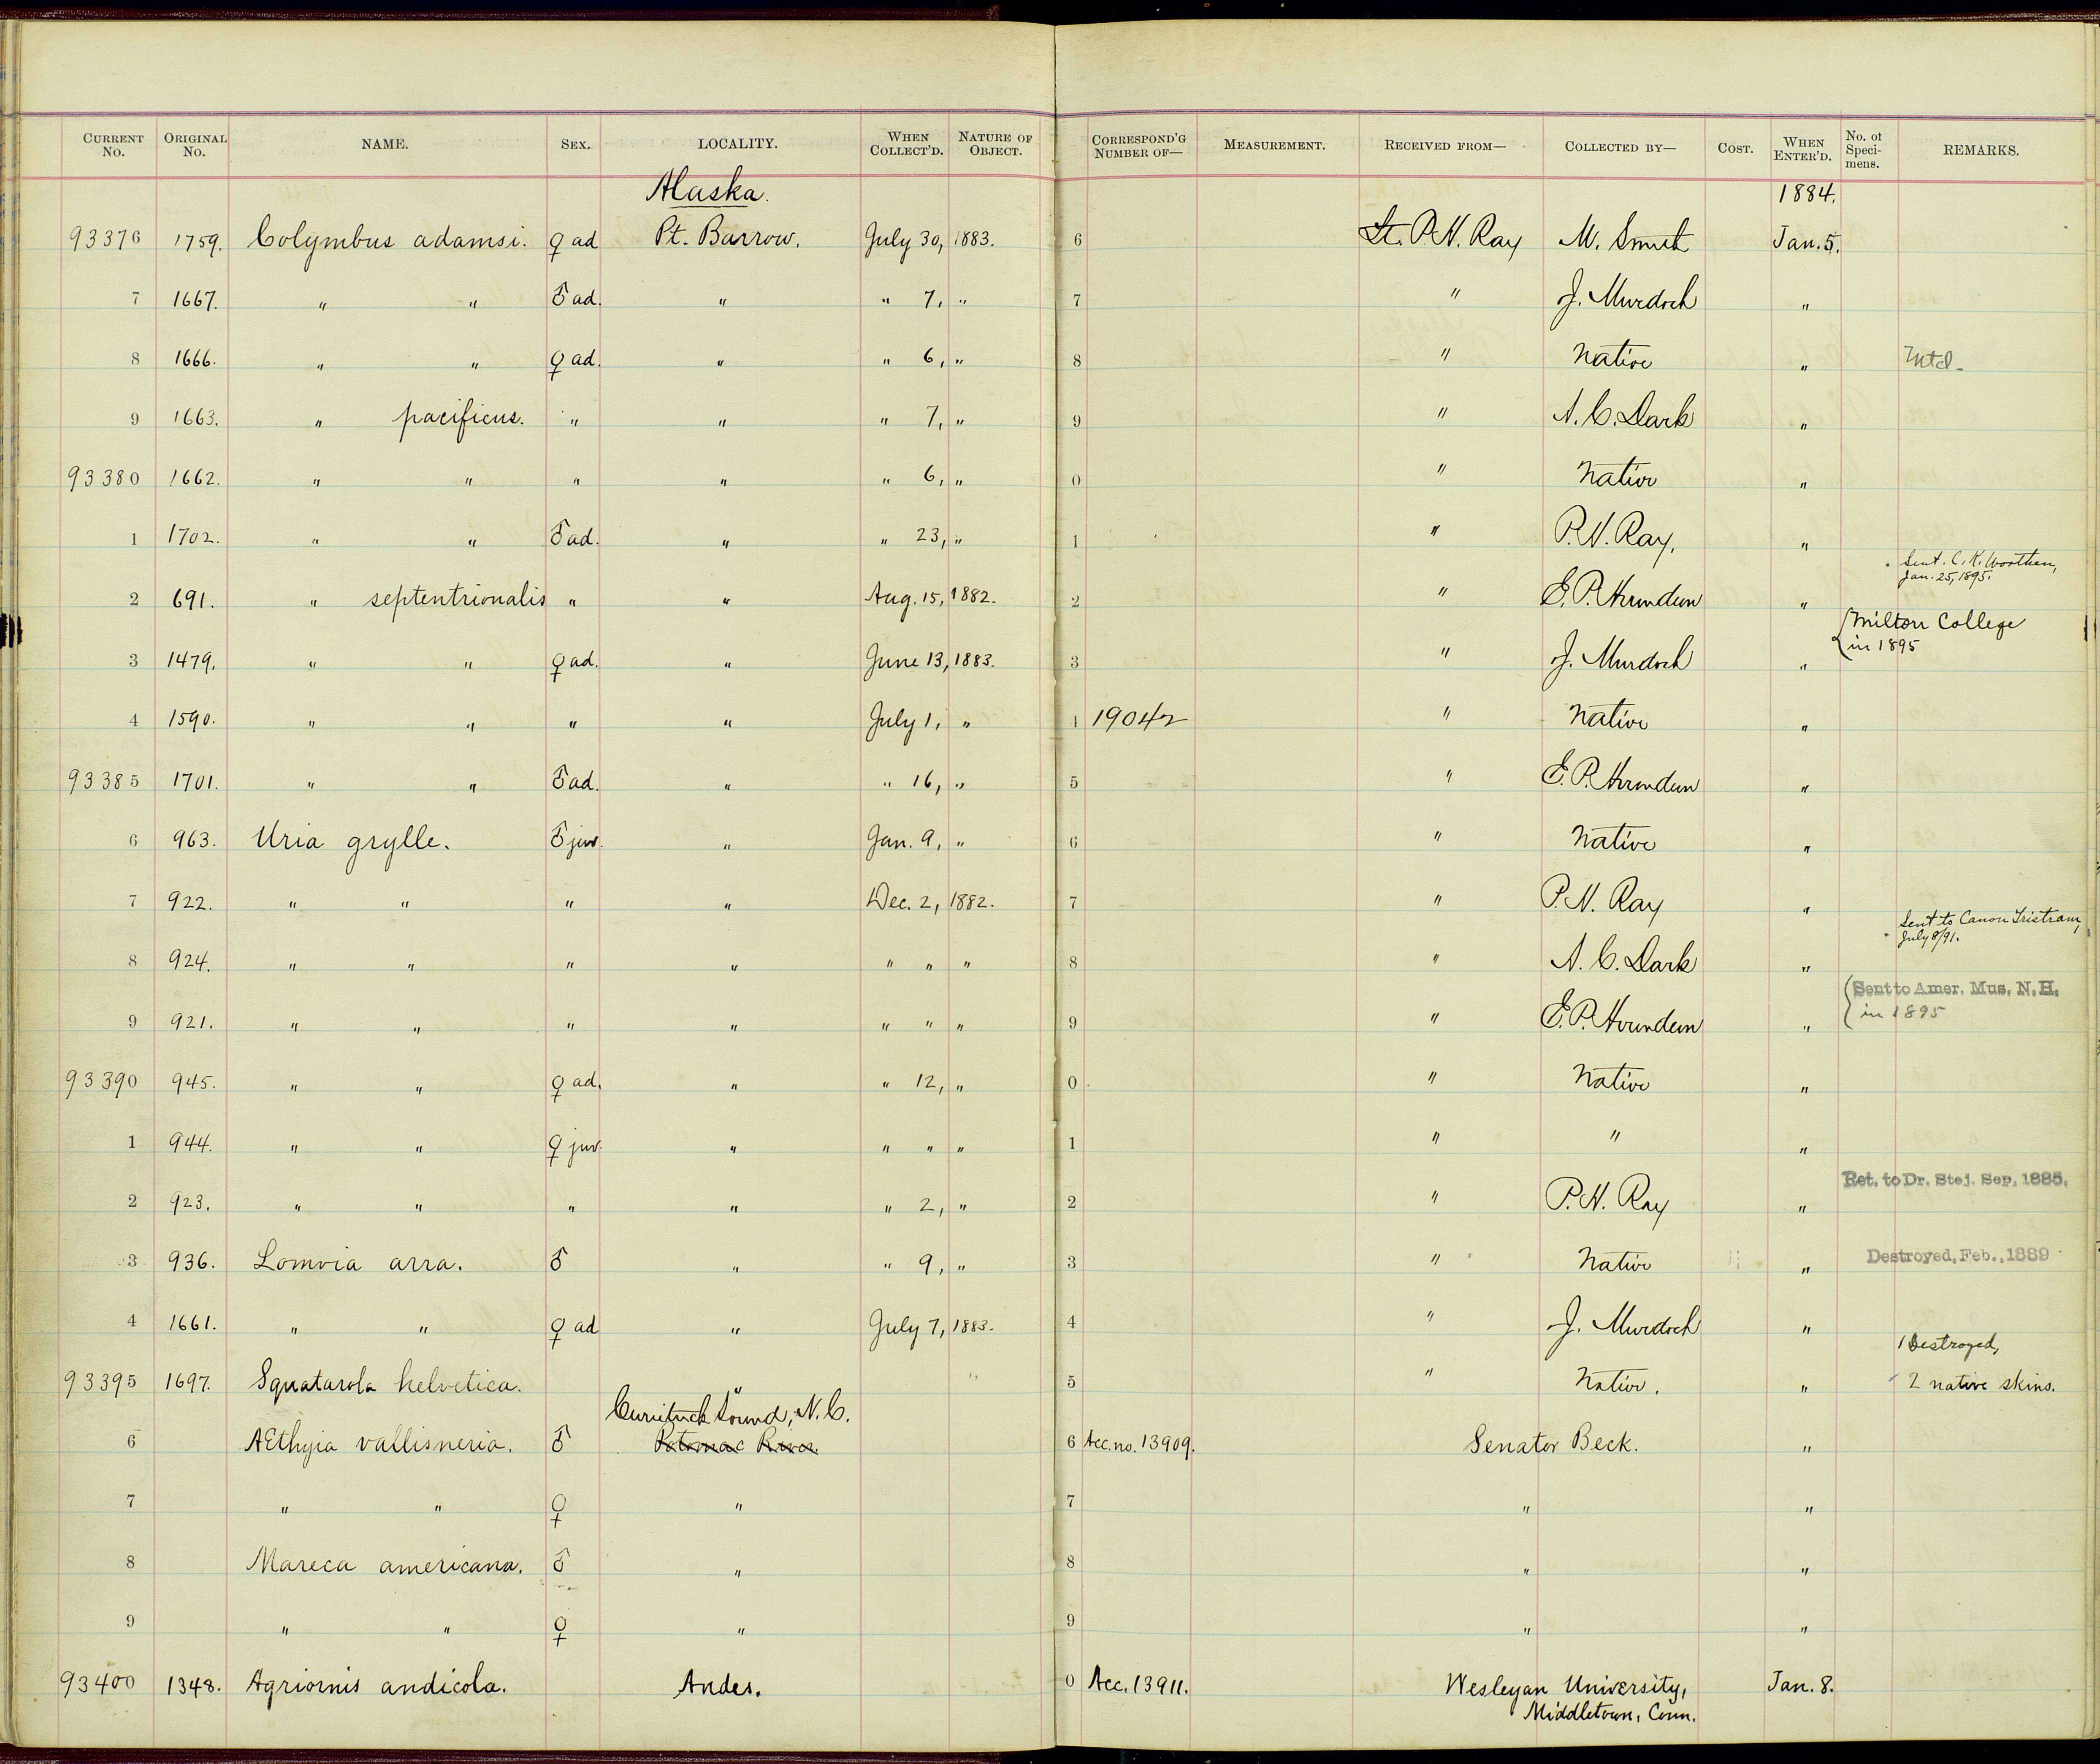 CURRENT No. ORIGINAL No. NAME. SEX. LOCALITY. WHEN COLLECT'D. NATURE OF OBJECT. CORRESPOND'G NUMBER OF— MEASUREMENT. RECEIVED FROM— COLLECTED BY— COST. WHEN ENTER'D. No. of Specimens. REMARKS.
Alaska. 1884.
93376 1759. Colymbus adamsi. ♀ ad Pt. Barrow. July 30, 1883. 6 Lt. P.H. Ray M. Smith Jan. 5.
7 1667. " " ♂ ad. " " 7, " 7 " J. Murdoch "
8 1666. " " ♀ ad. " " 6, " 8 " Native " Mtd.
9 1663. " pacificus. " " " 7, " 9 " A. C. Dark "
93380 1662. " " " " " 6, " 0 " Native "
1 1702. " " ♂ ad. " " 23, " 1 " P.H. Ray. "
Sent. C. K. Worthen,
Jan. 25, 1895.
2 691. " septentrionalis " " Aug. 15, 1882. 2 " E. P. Herendeen "
Milton College
in 1895
3 1479. " " ♀ ad. " June 13, 1883. 3 " J. Murdoch "
4 1590. " " " " July 1, " 4 19042 " Native "
93385 1701. " " ♂ ad. " " 16, " 5 " E. P. Herendeen "
6 963. Uria grylle. ♂ juv. " Jan. 9, " 6 " Native "
7 922. " " " " Dec. 2, 1882. 7 " P.H. Ray "
Sent to Canon Tristram,
July 8/91.
8 924. " " " " " " " 8 " A. C. Dark "
Sent to Amer. Mus. N. H.
in 1895
9 921. " " " " " " " 9 " E. P. Herendeen "
93390 945. " " ♀ ad. " " 12, " 0 " Native "
1 944. " " ♀ juv. " " " " 1 " " "
Ret. to Dr. Stej. Sep. 1885.
2 923. " " " " " 2, " 2 " P.H. Ray "
3 936. Lomvia arra. ♂ " " 9, " 3 " Native " Destroyed, Feb., 1889
4 1661. " " ♀ ad " July 7, 1883. 4 " J. Murdoch "
1 Destroyed,
93395 1697. Squatarola helvetica. " 5 " Native. " 2 native skins.
Currituck Sound, N. C.
6 AEthyia vallisneria. ♂ Potomac River. 6 Acc. no. 13909. Senator Beck. "
7 " " ♀ " 7 " "
8 Mareca americana. ♂ " 8 " "
9 " " ♀ " 9 " "
93400 1348. Agriornis andicola. Andes. 0 Acc. 13911. Wesleyan University, Jan. 8.
Middletown, Conn.